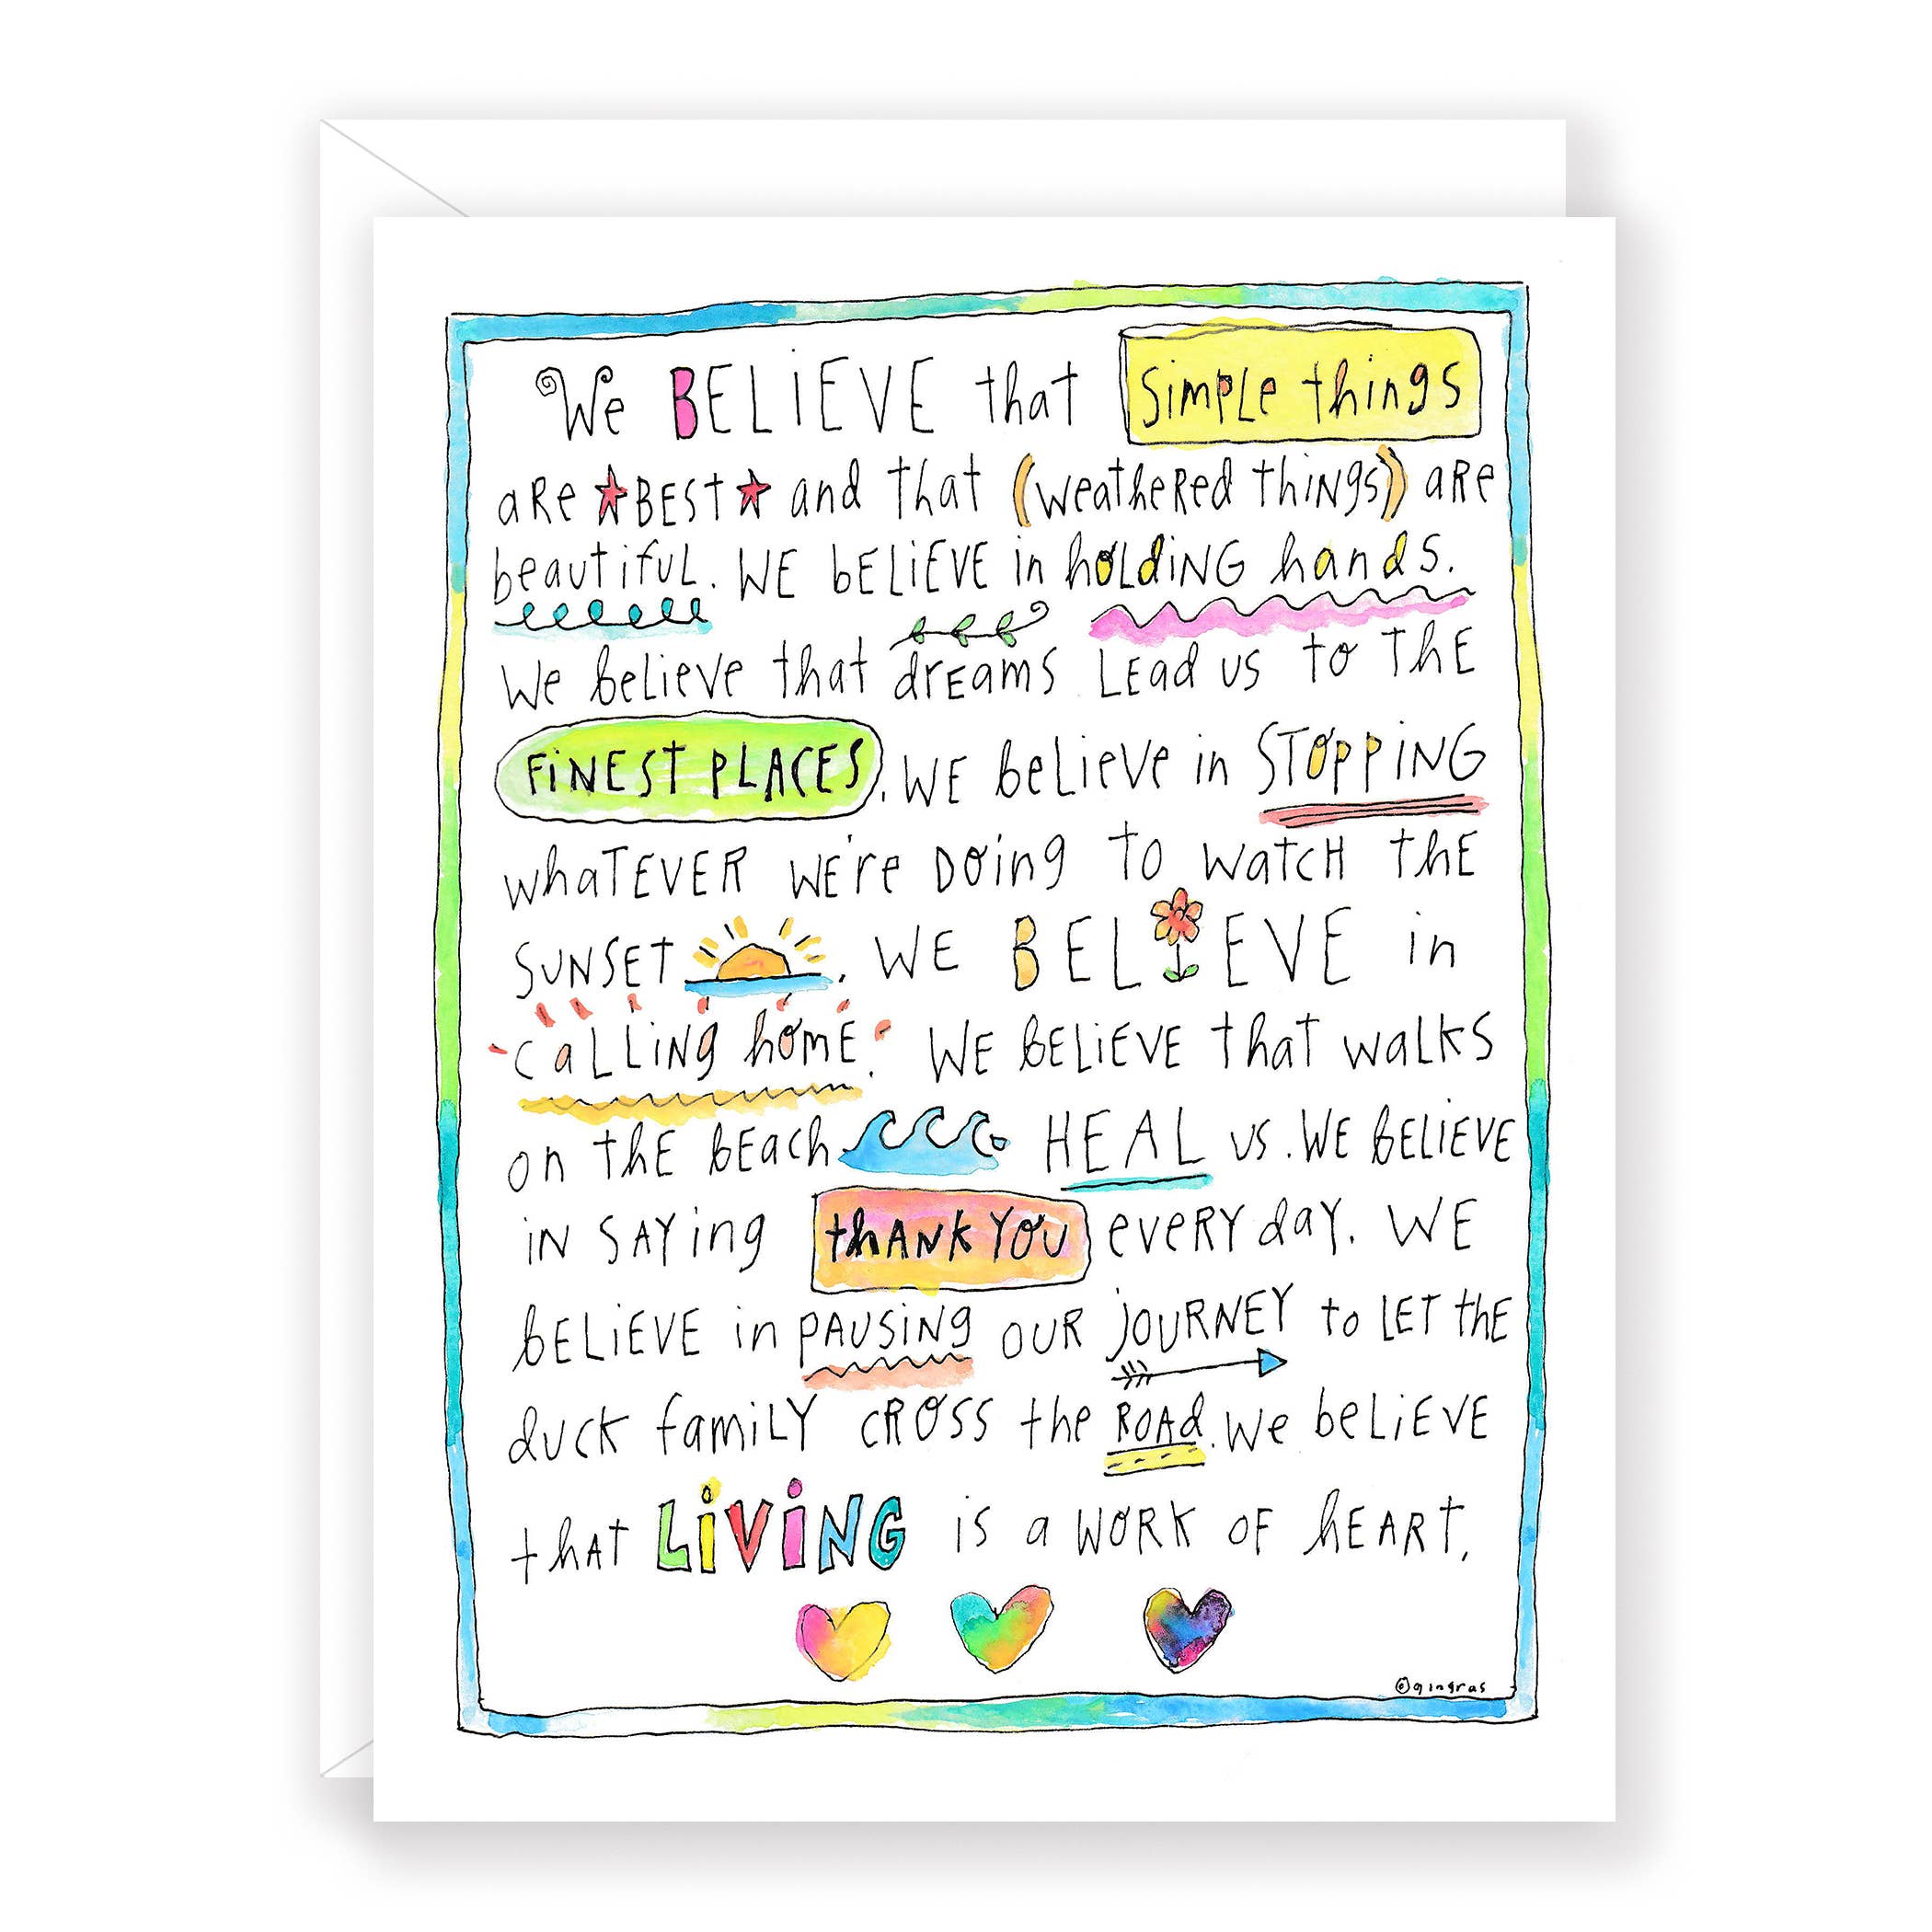 We BELiEVE that SiMPLe things
aRe BEST and that (weatheRed thiNgs) aRe
beautifuL. WE bELiEVE in hOLdiNG hands.
We beLieVe that drEamS LEad US to ThE
FiNEST PLACES. WE beLieVe in STOPPiNG
whaTEVER WE're DOing TO WatCH thE
SUNSET. WE BELIEVE in
CaLLiNg hOmE. WE BELiEVE that waLKS
on thE bEach HEAL us. WE BELiEVE
iN SAYing thANK YOU eveRY daY. WE
bELiEVE in PAUSiNg OUR JOURNEY to LET thE
duck famiLY cROSS the ROAd. We beLiEVE
thAT LiViNG is a WORK OF hEART.
©gingras